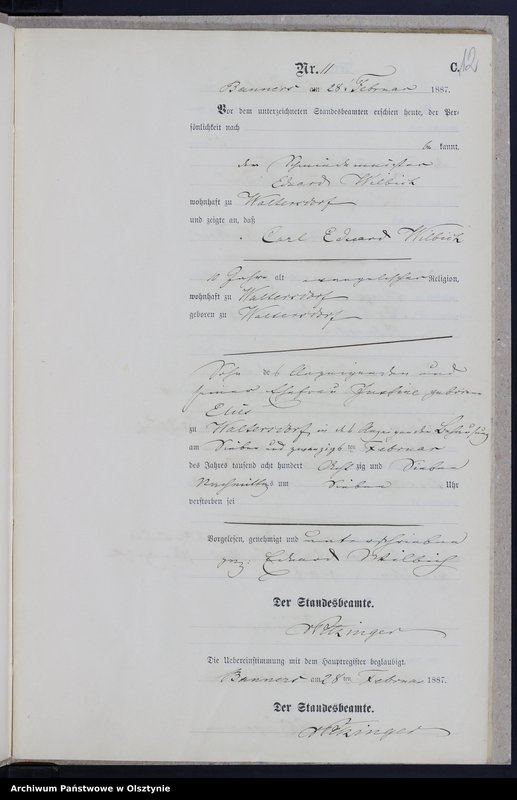 Nr. 11
C.
12
Banners am 28. Februar 1887.
Vor dem unterzeichneten Standesbeamten erschien heute, der Per-
sönlichkeit nach
be kannt,
der
Eduard Wilbich
wohnhaft zu Waltersdorf
und zeigte an, daß
Carl Eduard Wilbich
Jahre alt evangelischer Religion,
wohnhaft zu Waltersdorf
geboren zu Waltersdorf
Sohn des Anzeigenden und
seiner Ehefrau Justine geborene
zu Waltersdorf in des Anzeigenden Behausung
am Sieben und zwanzigsten Februar
des Jahres tausend acht hundert Acht zig und Sieben
Nachmittags um Sieben Uhr
verstorben sei
Vorgelesen, genehmigt und unterschrieben
gez: Eduard Wilbich
Der Standesbeamte.
Die Uebereinstimmung mit dem Hauptregister beglaubigt.
Banners am 28ten Februar 1887.
Der Standesbeamte.
Archiwum Państwowe w Olsztynie